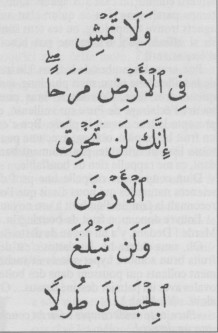 وَلَا تَمۡشِ
فِي ٱلۡأَرۡضِ مَرَحًاۖ
إِنَّكَ لَن تَخۡرِقَ
ٱلۡأَرۡضَ
وَلَن تَبۡلُغَ
ٱلۡجِبَالَ طُولٗا